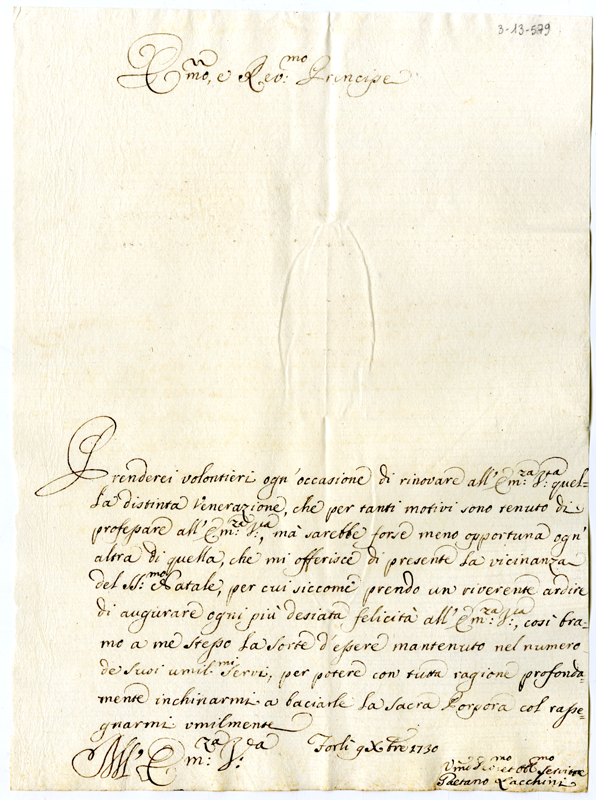 3-13-579
Em̃o, e Rev:mo Principe
Prenderei volontieri ogn'occasione di rinovare all'Em:za V:ra quel-
la distinta Venerazione, che per tanti motivi sono tenuto di
professare all'Em:za V:ra, mà sarebbe forse meno opportuna ogn'
altra di quella, che mi offerisce di presente la vicinanza
del SS:mo Natale, per cui siccome prendo un riverente ardire
di augurare ogni più desiata felicità all'Em:za V:ra, così bra-
mo a me stesso la sorte d'essere mantenuto nel numero
de suoi umil:mi Servi, per potere con tutta ragione profonda-
mente inchinarmi a baciarle la Sacra Porpora col rasse-
gnarmi umilmente
All'Em:za V:ra
Forlì 9Xbre 1730
Servitore
Gaetano Zacchini